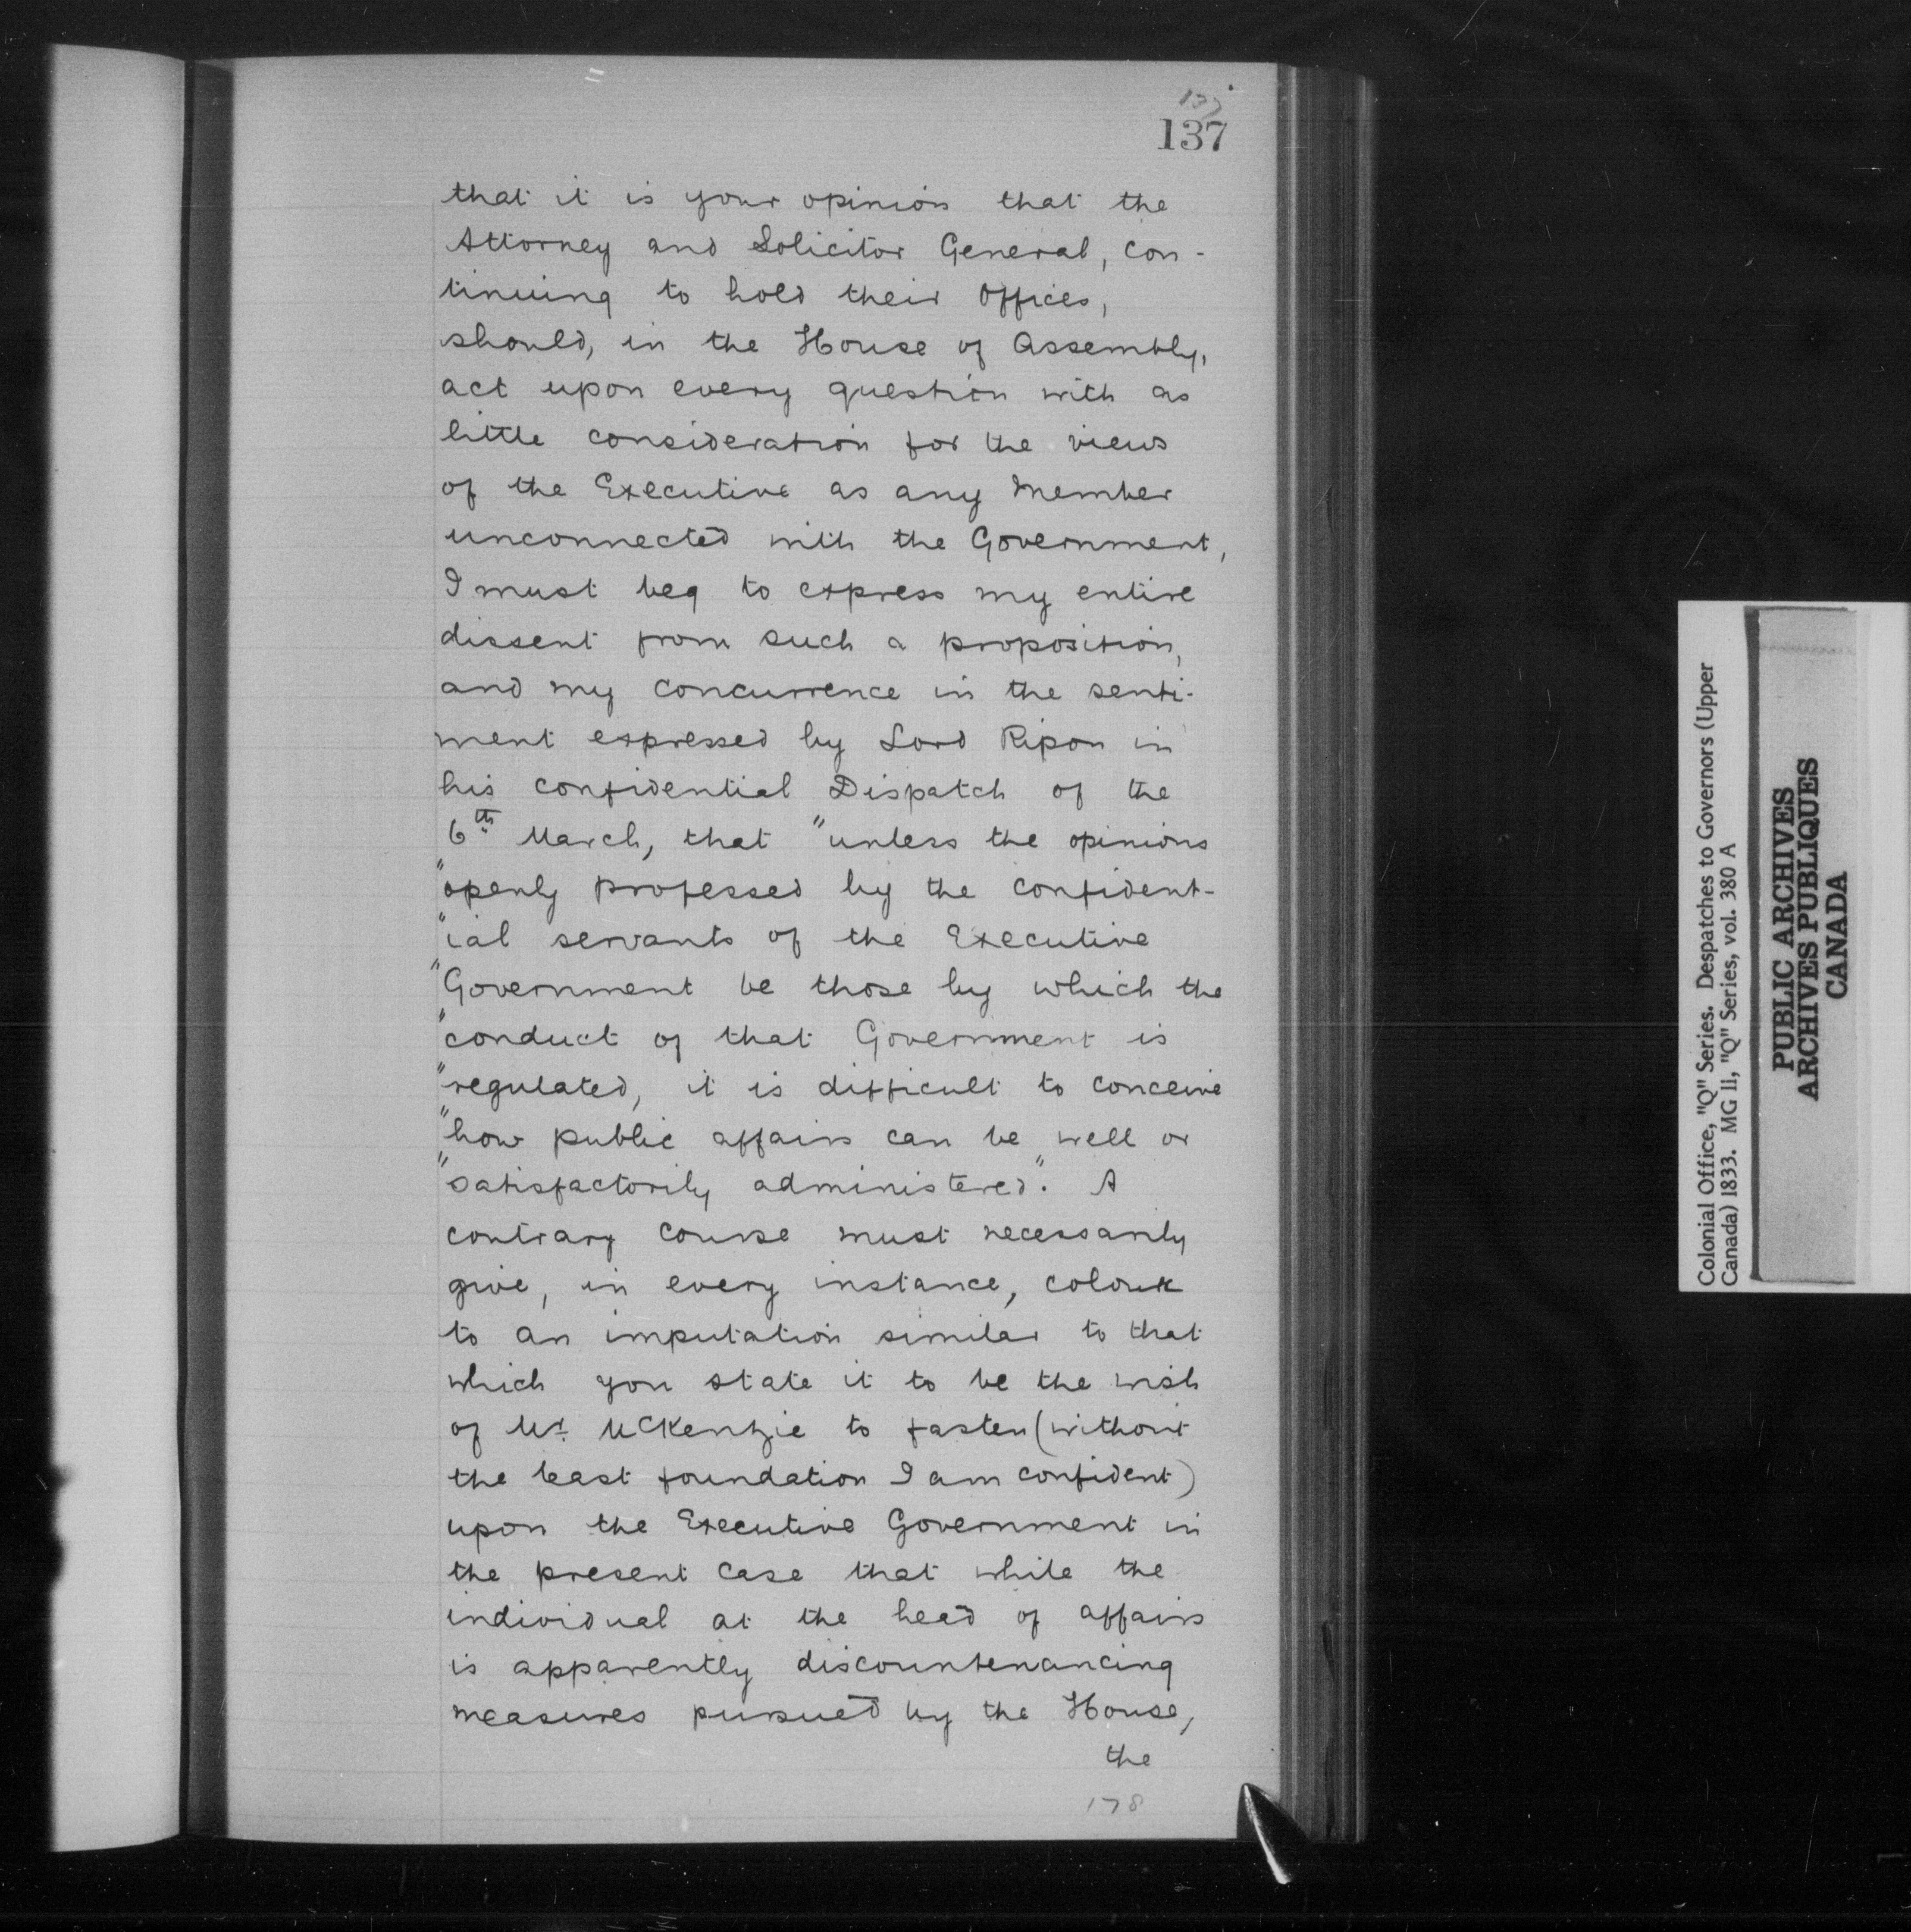 137
137
that it is your opinion that the
Attorney and Solicitor General, con-
tinuing to hold their Offices,
should, in the House of Assembly,
act upon every question with as
little consideration for the views
of the Executive as any Member
unconnected with the Government,
I must beg to express my entire
dissent from such a proposition,
and my concurrence in the senti-
ment expressed by Lord Ripon in
his confidential Dispatch of the
6th March, that "unless the opinions
"openly professed by the confident-
"ial servants of the Executive
"Government be those by which the
"conduct of that Government is
"regulated, it is difficult to conceive
"how public affairs can be well or
"satisfactorily administered". A
contrary course must necessarily
give, in every instance, colour
to an imputation similar to that
which you state it to be the wish
of Mr. McKenzie to fasten (without
the least foundation I am confident)
upon the Executive Government in
the present case that while the
individual at the head of affairs
is apparently discountenancing
measures pursued by the House,
the
178
Colonial Office, "Q" Series. Despatches to Governors (Upper
Canada) 1833. MG 11, "Q" Series, vol. 380 A
PUBLIC ARCHIVES
ARCHIVES PUBLIQUES
CANADA